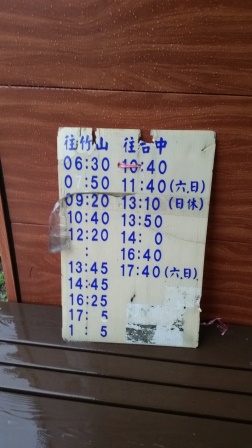 往竹山 往台中
06:30 10:40
0 :50 11:40(六,日)
09:20 13:10(日休)
10:40 13:50
12:20 14: 0
: 16:40
13:45 17:40(六,日)
14:45
16:25
17: 5
1 : 5